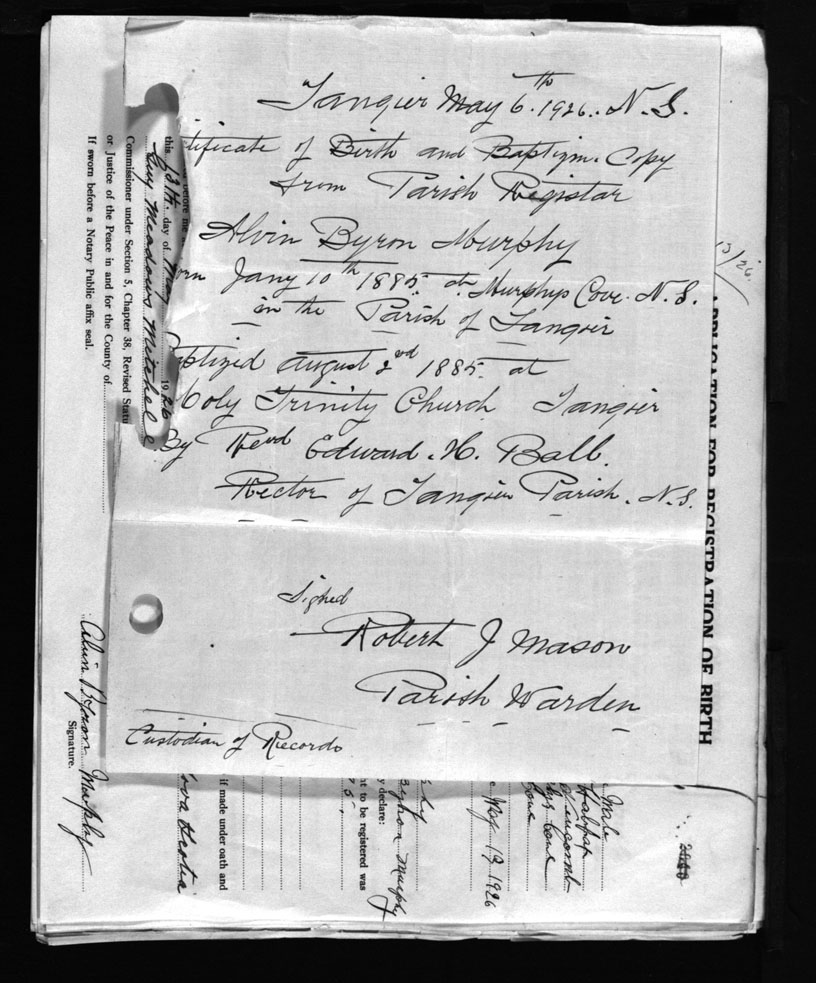 Tangier May 6th. 1926. N.S.
tificate of Birth and Baptism. Copy
from Parish Registar
Alvin Byron Murphy
orn Jany 10th 1885. at Murphys Cove. N.S.
in the Parish of Tangier
aptized august 2nd 1885. at
Holy Trinity Church Tangier
By Revd Edward. H. Ball.
Rector of Tangier Parish. N.S.
Signed
Robert J Mason
Parish Warden
Custodian of Records
APPLICATION FOR REGISTRATION OF BIRTH
13/26.
Male
Halifax
Cove
May 13 1926
Byron Murphy
y declare:
nt to be registered was
if made under oath and
Nova Scotia
before me
this 13th. day of May 1926
Guy Meadows Mitchell
Commissioner under Section 5, Chapter 38, Revised Statu
or Justice of the Peace in and for the County of
If sworn before a Notary Public affix seal.
Alvin Byron Murphy
Signature.